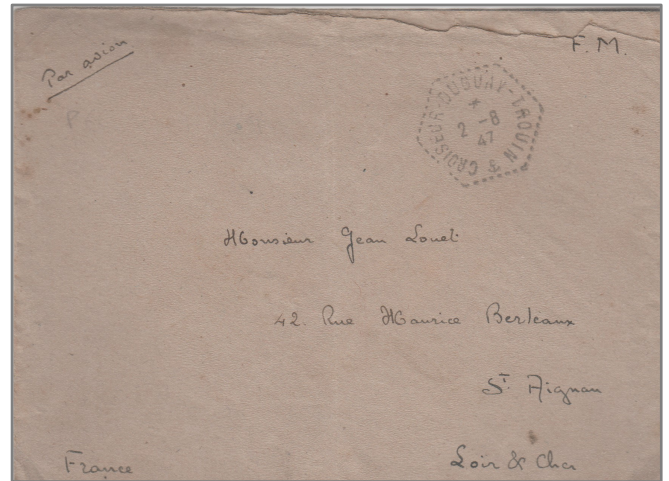 Par avion
F.M.
CROISEUR-DUGUAY-TROUIN
*
2 -8
47
Monsieur Jean Louet
42. Rue Maurice Berteaux
St. Aignan
France
Loir & Cher